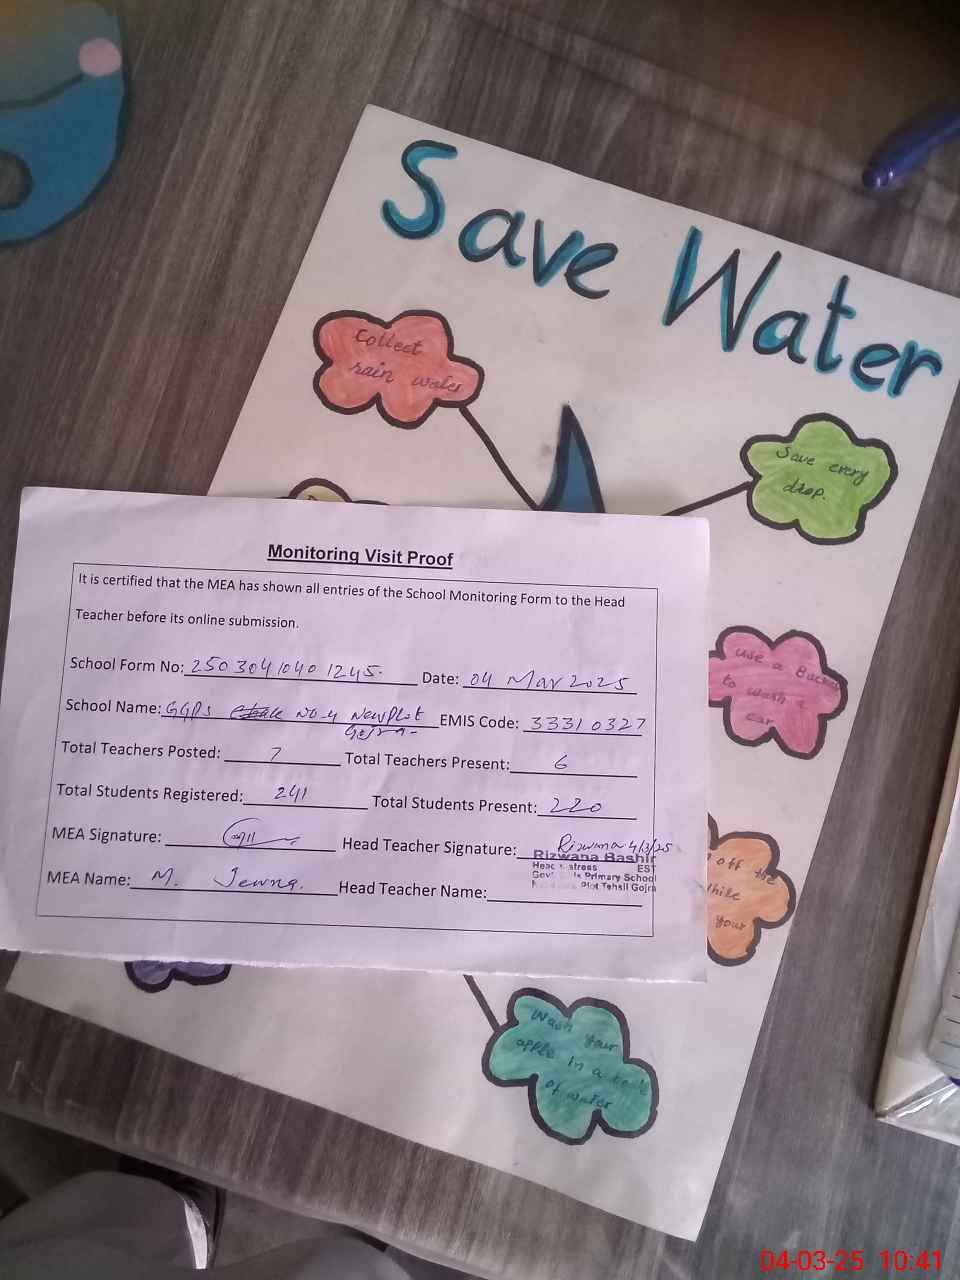 Save Water
Collect
rain water
Save every
drop.
Monitoring Visit Proof
It is certified that the MEA has shown all entries of the School Monitoring Form to the Head
Teacher before its online submission.
School Form No: 250 304 1040 1245. Date: 04 Mar 2025
School Name: GGPS No.4 New Plot EMIS Code: 33310327
Gojra
Total Teachers Posted: 7 Total Teachers Present: 6
Total Students Registered: 241 Total Students Present: 220
MEA Signature: Head Teacher Signature: Rizwana 4/3/25
Rizwana Bashir
EST
Primary School
Plot Tehsil Gojra
MEA Name: M. Head Teacher Name:
use a
to wash a
car
off the
while
your
Wash your
apple in a
of water
04-03-25 10:41